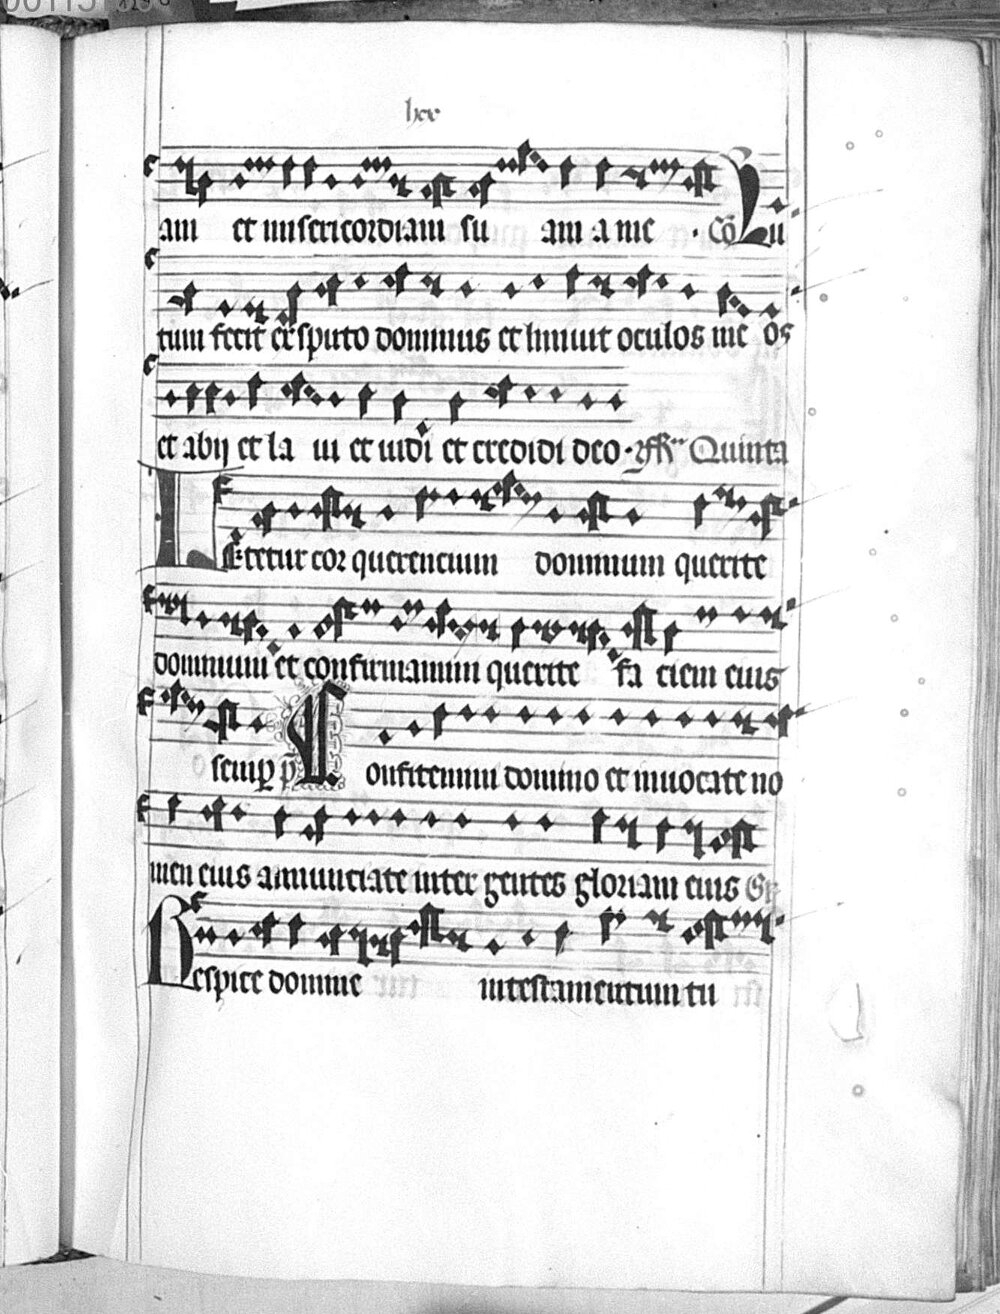 lxx
am et misericordiam su am a me · Cō Lu
tum fecit ex sputo dominus et liniuit oculos me os
et abij et la ui et uidi et credidi deo · Quinta
LEtetur cor querencium dominum querite
dominum et confirmamini querite fa ciem eius
semp p̄ Confitemini domino et inuocate no
men eius annunciate inter gentes gloriam eius Gr
Respice domine in testamentum tu